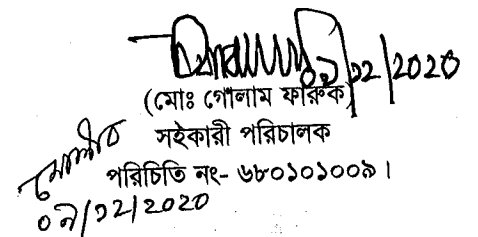 ০৯/১২/২০২০
(মোঃ গোলাম ফারুক)
সইকারী পরিচালক
পরিচিতি নং- ৬৮০১০১০০৯।
০৯/১২/২০২০